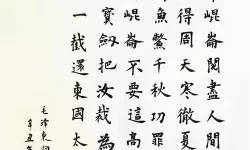 崐崙閱盡人間
得周天寒徹夏
魚鱉千秋功罪
崐崙不要這高
寶劍把汝裁為
一截還東國太
毛澤東詞
辛丑年